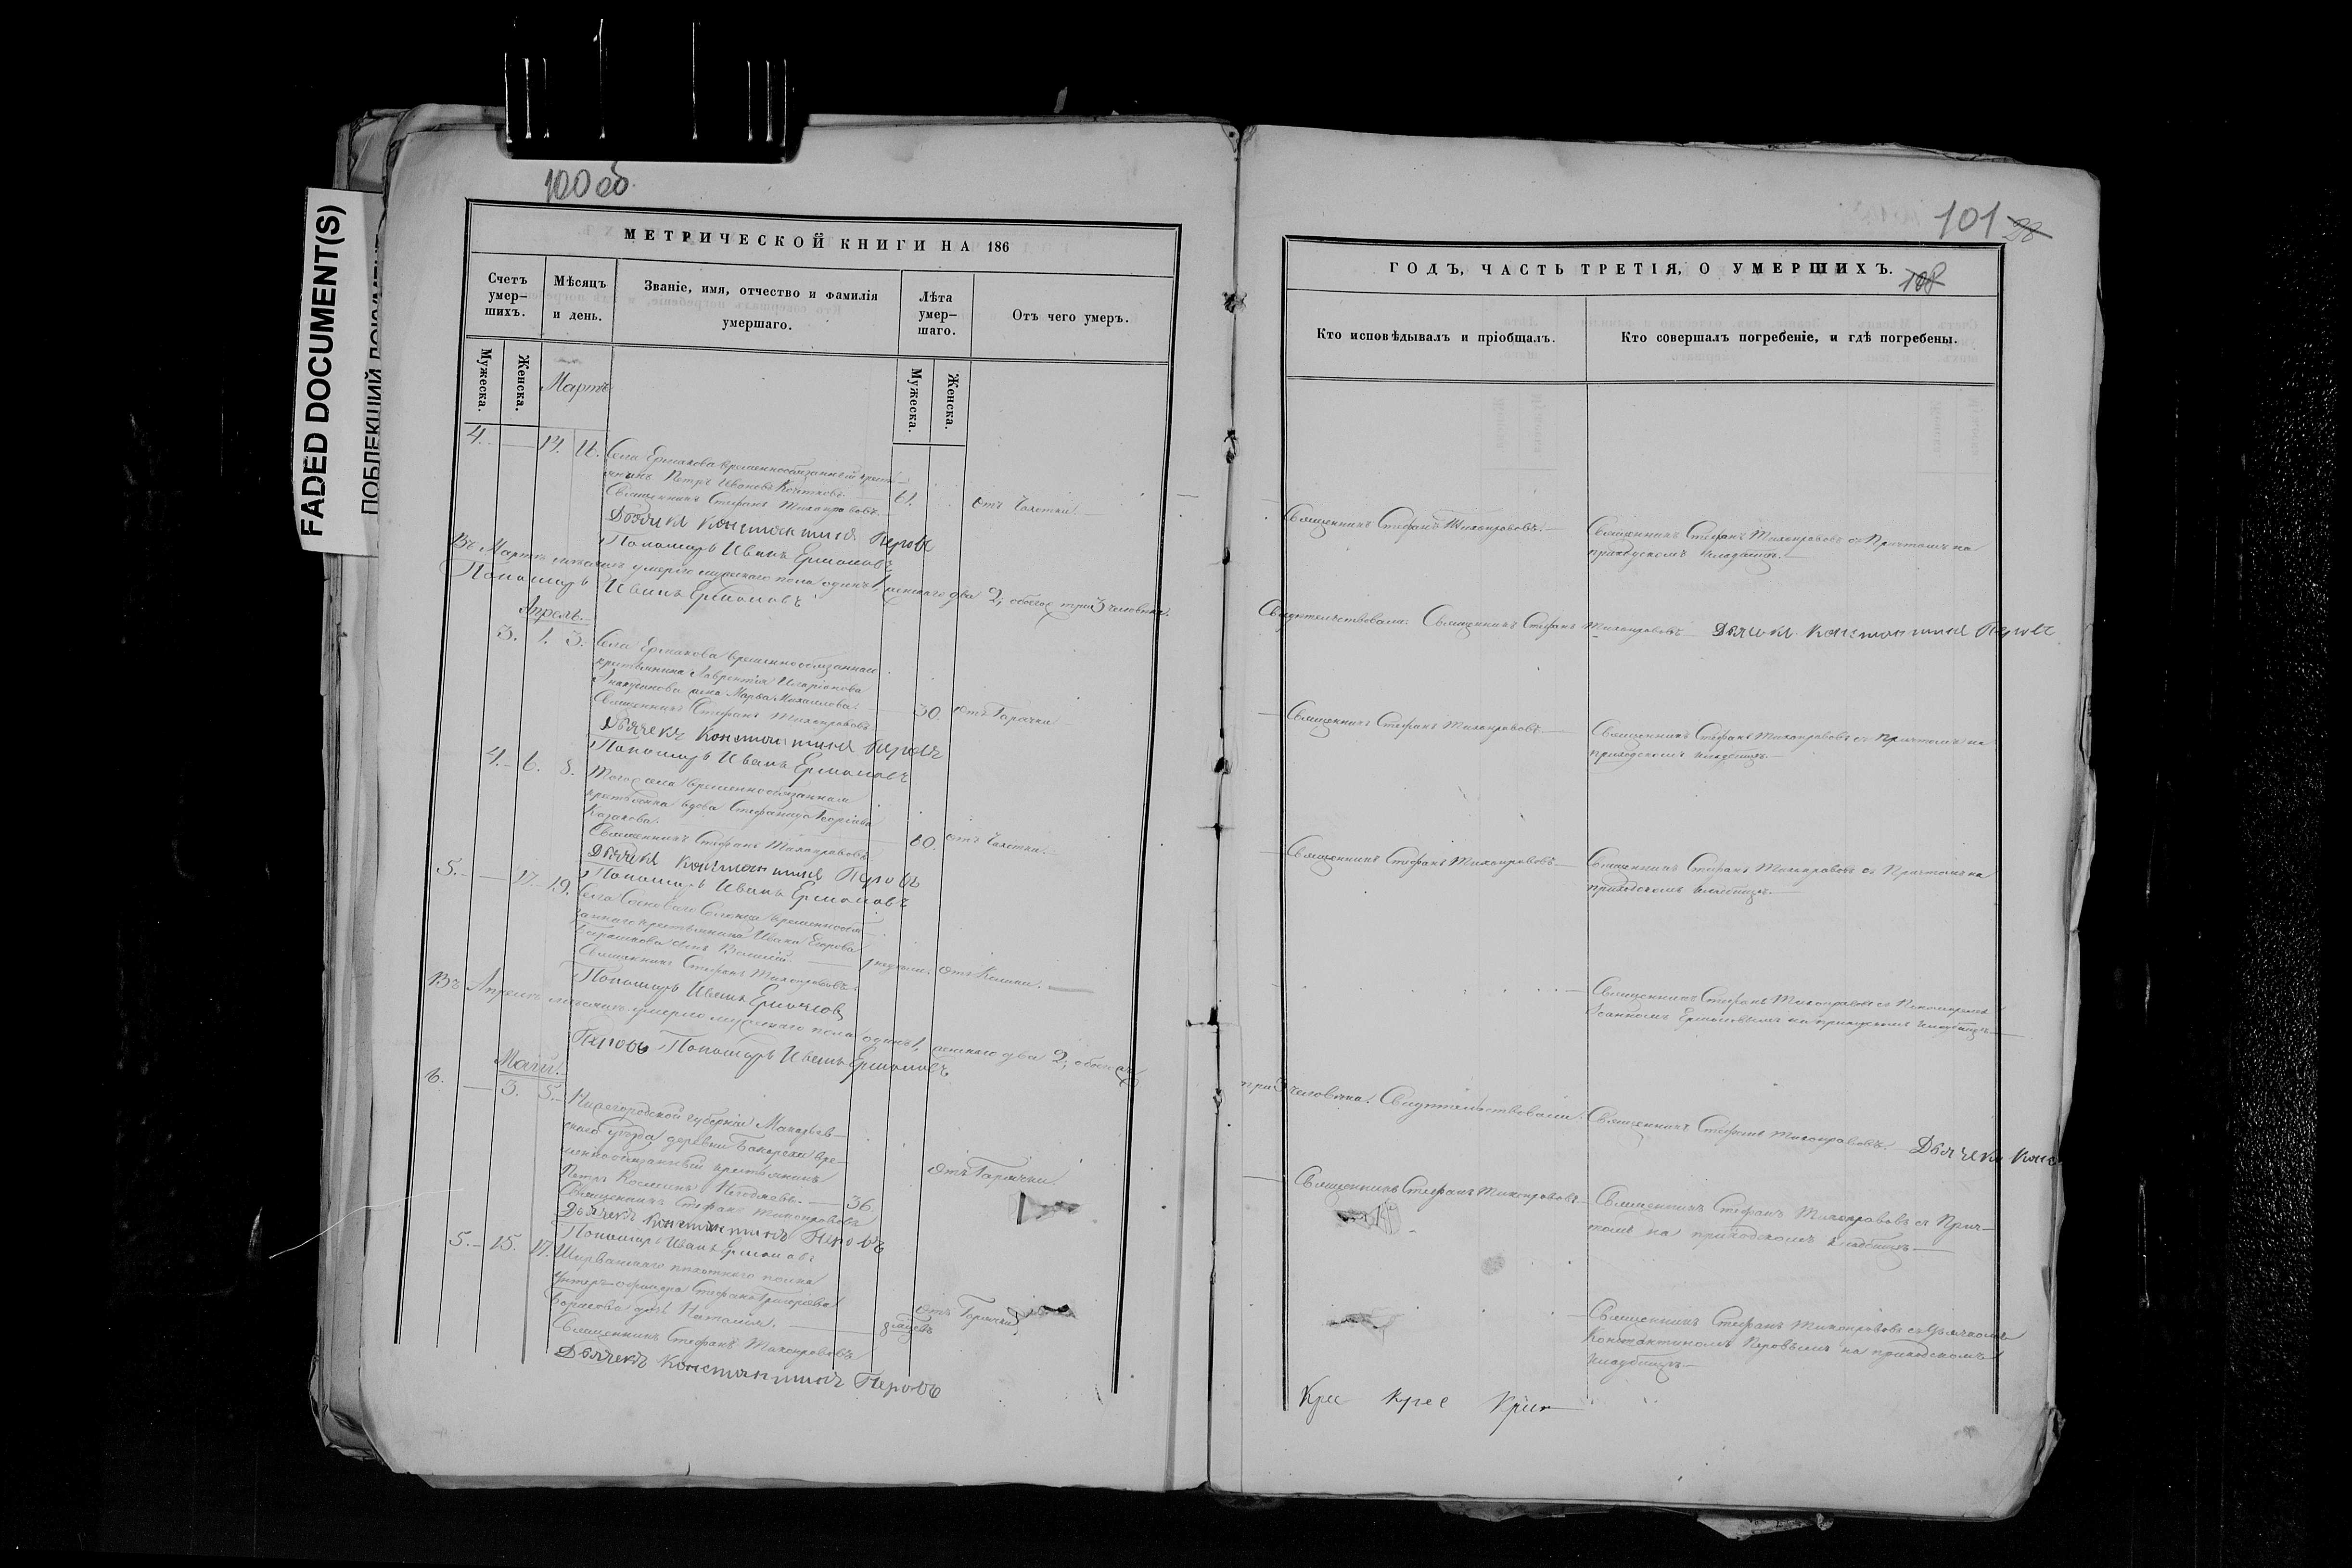 FADED DOCUMENT(S)
100 об.
МЕТРИЧЕСКОЙ КНИГИ НА 186
Счетъ умер-
шихъ.
Мѣсяцъ
и день.
Званіе, имя, отчество и фамилія
умершаго.
Лѣта
умер-
шаго.
Отъ чего умеръ.
Мужеска.
Женска.
Мужеска.
Женска.
Мартъ
4. — 14.
Села Ермакова временнообязанный кресть-
янинъ Петръ Ивановъ
61. Отъ Чахотки.
Священникъ Стефанъ Тихонравовъ.
Дьячекъ Константинъ Перовъ
Пономарь Иванъ Ермоловъ
Въ Мартѣ мѣсяцѣ умерло мужескаго пола одинъ 1, женскаго два 2, обоего три 3 человѣка.
Пономарь Иванъ Ермоловъ
Апрель.
3. 1. 3. Села Ермакова временнообязаннаго
крестьянина Лаврентія Иларіонова
жена Марѳа Михаилова.
30. Отъ Горячки
Священникъ Стефанъ Тихонравовъ
Дьячекъ Константинъ Перовъ
Пономарь Иванъ Ермоловъ
4. 6. 8. Тогоже села временнообязанная
крестьянка вдова Стефанида Георгіева
Казакова.
60. Отъ Чахотки.
Священникъ Стефанъ Тихонравовъ
Дьячекъ Константинъ Перовъ
Пономарь Иванъ Ермоловъ
5. — 17. 19. Села Сосноваго Солонца временнообя-
заннаго крестьянина Ивана Егорова
сынъ Василій.
Священникъ Стефанъ Тихонравовъ
Пономарь Иванъ Ермоловъ
Въ Апрелѣ мѣсяцѣ умерло мужескаго пола одинъ 1, женскаго два 2, обоего
Перовъ Пономарь Иванъ Ермоловъ
Май.
6. — 3. 5. Нижегородской губерніи Макарьев-
скаго уѣзда деревни вре-
меннообязанный крестьянинъ
Петръ Козминъ
36. Отъ Горячки.
Священникъ Стефанъ Тихонравовъ
Дьячекъ Константинъ Перовъ
Пономарь Иванъ Ермоловъ
5. 15. 17. Ширванскаго пѣхотнаго полка
Унтеръ-офицера Стефана Григоріева
дочь Наталія.
Отъ Горячки
Священникъ Стефанъ Тихонравовъ
Дьячекъ Константинъ Перовъ
101
28
108
ГОДЪ, ЧАСТЬ ТРЕТІЯ, О УМЕРШИХЪ.
Кто исповѣдывалъ и пріобщалъ.
Кто совершалъ погребеніе, и гдѣ погребены.
Священникъ Стефанъ Тихонравовъ.
Священникъ Стефанъ Тихонравовъ съ Причтомъ на
приходскомъ кладбищѣ.
Свидѣтельствовали: Священникъ Стефанъ Тихонравовъ Дьячекъ Константинъ Перовъ
Священникъ Стефанъ Тихонравовъ
Священникъ Стефанъ Тихонравовъ съ Причтомъ на
приходскомъ кладбищѣ.
Священникъ Стефанъ Тихонравовъ
Священникъ Стефанъ Тихонравовъ съ Причтомъ на
приходскомъ кладбищѣ.
Священникъ Стефанъ Тихонравовъ съ Пономаремъ
Іоанномъ Ермоловымъ на приходскомъ кладбищѣ
три 3 человѣка. Свидѣтельствовали: Священникъ Стефанъ Тихонравовъ. Дьячекъ Конс
Священникъ Стефанъ Тихонравовъ
Священникъ Стефанъ Тихонравовъ съ Прич-
томъ на приходскомъ кладбищѣ
Священникъ Стефанъ Тихонравовъ съ Дьячкомъ
Константиномъ Перовымъ на приходскомъ
кладбищѣ
Крес Крес